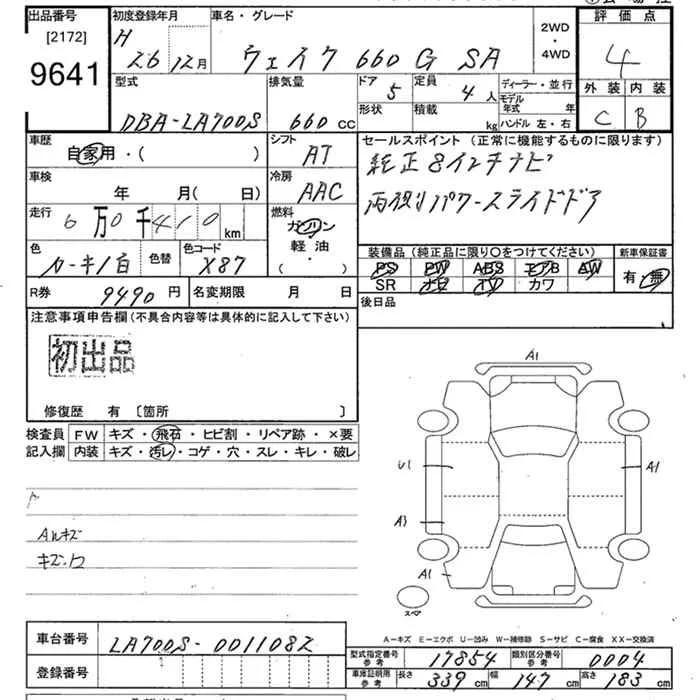 出品番号
[2172]
9641
初度登録年月
H
26 年 12 月
車名・グレード
ウェイク 660 G SA
2WD
・
4WD
評価点
4
外装 内装
C B
型式
DBA-LA700S
排気量
660 CC
ドア 5
形状
定員 4 人
積載 kg
ディーラー・並行
モデル年式 年
ハンドル 左・右
車歴
自家用・( )
シフト
AT
車検
年 月( 日)
冷房
AAC
走行
6 万 0 千 410 km
燃料
ガソリン
軽油
・( )
色
色替
色コード
X87
R券
9490 円
名変期限 月 日
セールスポイント (正常に機能するものに限ります)
純正8インチナビ
両側パワースライドドア
装備品 (純正品に限り〇をつけてください)
新車保証書
PS PW ABS エアB AW
SR ナビ TV カワ
有・無
後日品
注意事項申告欄(不具合内容等は具体的に記入して下さい)
初出品
修復歴 有 〔箇所 〕
検査員
記入欄
FW キズ・飛石・ヒビ割・リペア跡・×要
内装 キズ・汚レ・コゲ・穴・スレ・キレ・破レ
Aルキズ
A1
U1
A1
A1
スペア
A-キズ E-エクボ U-凹み W-補修跡 S-サビ C-腐食 XX-交換済
車台番号
LA700S-0011082
登録番号
型式指定番号
参考
17854
類別区分番号
参考
0004
車庫証明用
参考
長さ 339 cm 幅 147 cm 高さ 183 cm